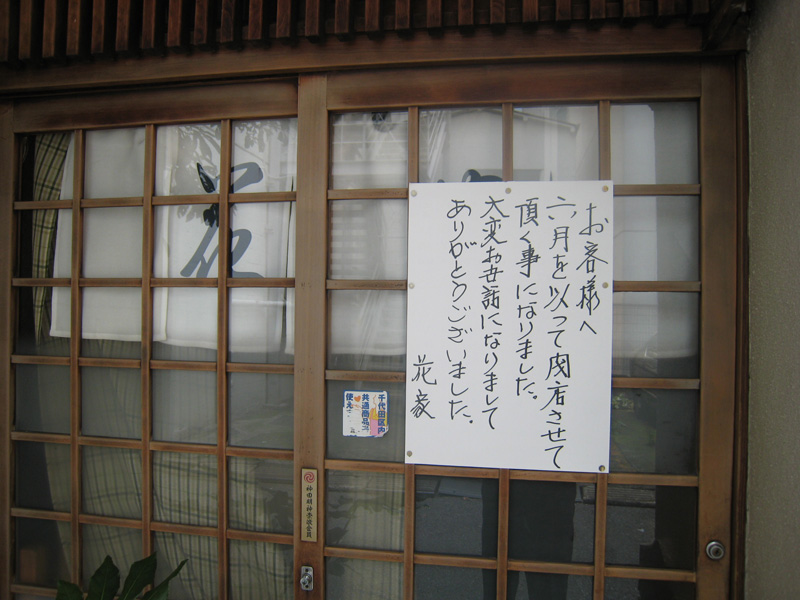 お客様へ
六月を以って閉店させて
頂く事になりました。
大変お世話になりまして
ありがとうございました。
花家
花
千代田区内
共通商品券
使え
神田明神季環会員